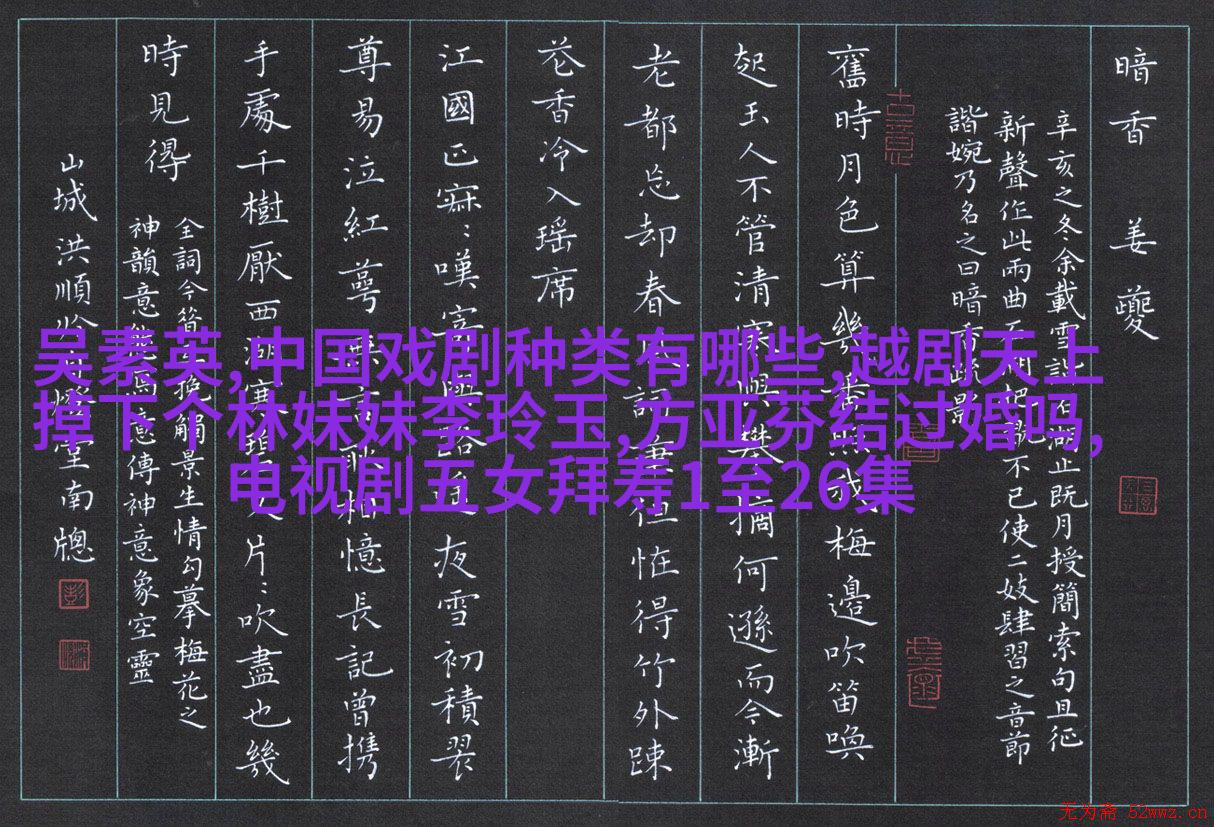 暗香 姜夔
辛亥之冬余載雪詣石湖止既月授簡索句且征
新聲作此兩曲石湖把不已使二妓肆習之音節
諧婉乃名之曰暗香疎影
舊時月色算幾番照我梅邊吹笛喚
起玉人不管清寒與攀摘何遜而今漸
老都忘却春風詞筆但恠得竹外踈
花香冷入瑶席
江國正寂:嘆寄與路遙夜雪初積翠
尊易泣紅萼無言耿相憶長記曾携
手處千樹壓西湖寒碧又片:吹盡也幾
時見得
全詞今昔觸景生情勾摹梅花之
神韻意傳神意象空靈
山城洪順堂南牕
古意
吴素英,中国戏剧种类有哪些,越剧天上
掉下个林妹妹李玲玉,方亚芬结过婚吗,
电视剧五女拜寿1至26集
无为斋 52wwz.cn